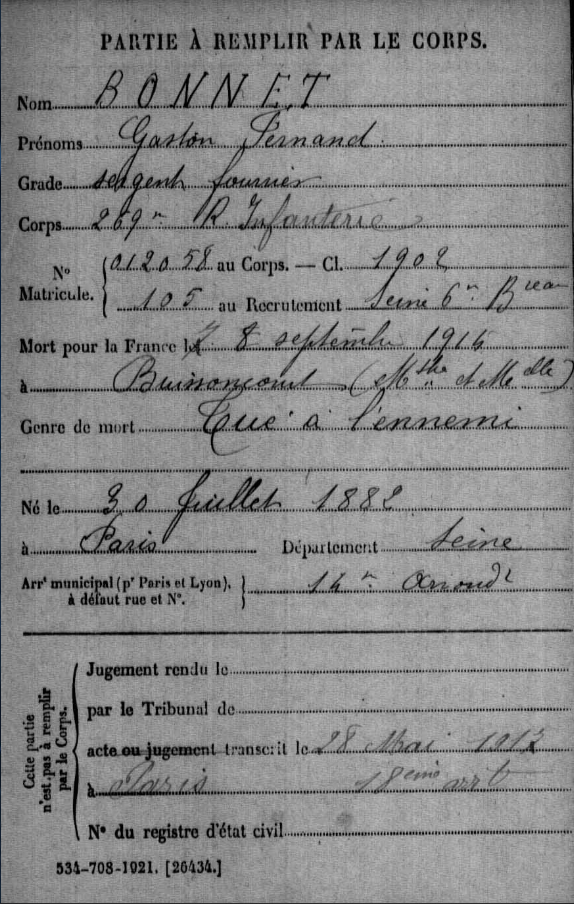 PARTIE À REMPLIR PAR LE CORPS.
Nom BONNET
Prénoms Gaston Fernand
Grade sergent fourrier
Corps 269me R. Infanterie
No Matricule. 012058 au Corps. — Cl. 1902
105 au Recrutement Seine 6me Breau
Mort pour la France le 8 septembre 1914
à Buissoncourt (Mthe et Melle)
Genre de mort Tué à l'ennemi
Né le 30 Juillet 1882
à Paris Département Seine
Arrt municipal (pr Paris et Lyon), à défaut rue et No. 14me Arrondt
Cette partie n'est pas à remplir par le Corps.
Jugement rendu le
par le Tribunal de
acte ou jugement transcrit le 28 Mai 1917
à Paris 18eme arrt
No du registre d'état civil
534-708-1921. [26434.]